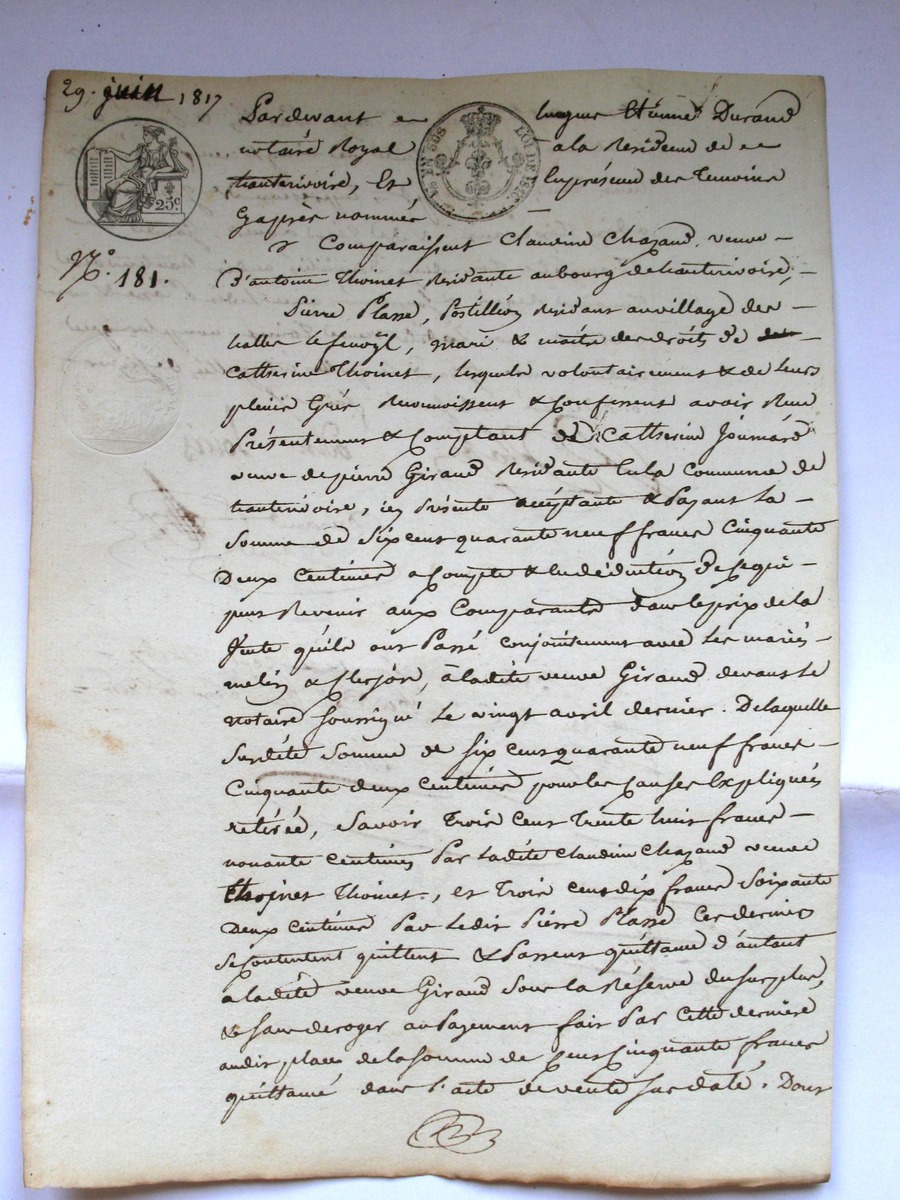 29. juin 1817
Pardevant Etienne Durand
notaire Royal a la Residence de
hauterivoire, Et En présence des Temoins
Cyaprès nommés
25c
LOI DE 1816
N.o 181.
Comparaissent Claudine Chazaud, veuve
D'antoine Thoinet Residante aubourg dehauterivoire,
Pierre Plasse, Postillion Residant auvillage des
halles lefenoÿl, mari & maitre des droits de
Catherine Thoinet, lesquels volontairement & de Leurs
pleins Grés Reconnoissent & Confessent avoir Recu
Présentement & Comptant De Catherine Joumard
veuve depierre Giraud Residante En la Commune de
hauterivoire, icy Présente acceptante & Payant La
Somme de Six cent quarante neuf francs Cinquante
Deux Centimes a Compte & En déduction de Cequi
peut Revenir aux Comparants dans le prix de la
Vente quils ont Passé conjointement avec Les mariés
& , à ladite veuve Giraud devant Le
notaire Soussigné Le vingt avril dernier. De laquelle
Susdite Somme de Six cent quarante neuf francs
Cinquante deux Centimes pour les Causes Expliquées
retirée, Savoir Trois Cent Trente huit francs
nonante Centimes Par Ladite Claudine Chazaud veuve
Thoinet, et Trois cent dix francs Soixante
Deux Centimes Par Ledit Pierre Plasse Ces derniers
Se Contentent quittent & Passent quittance d'autant
a ladite veuve Giraud Sous La Réserve du Surplus,
& Sans deroger au Payement fait Par Cette derniere
audit Plasse de la Somme de Cent Cinquante francs
quittancé dans l'acte de vente Sus daté. Dont